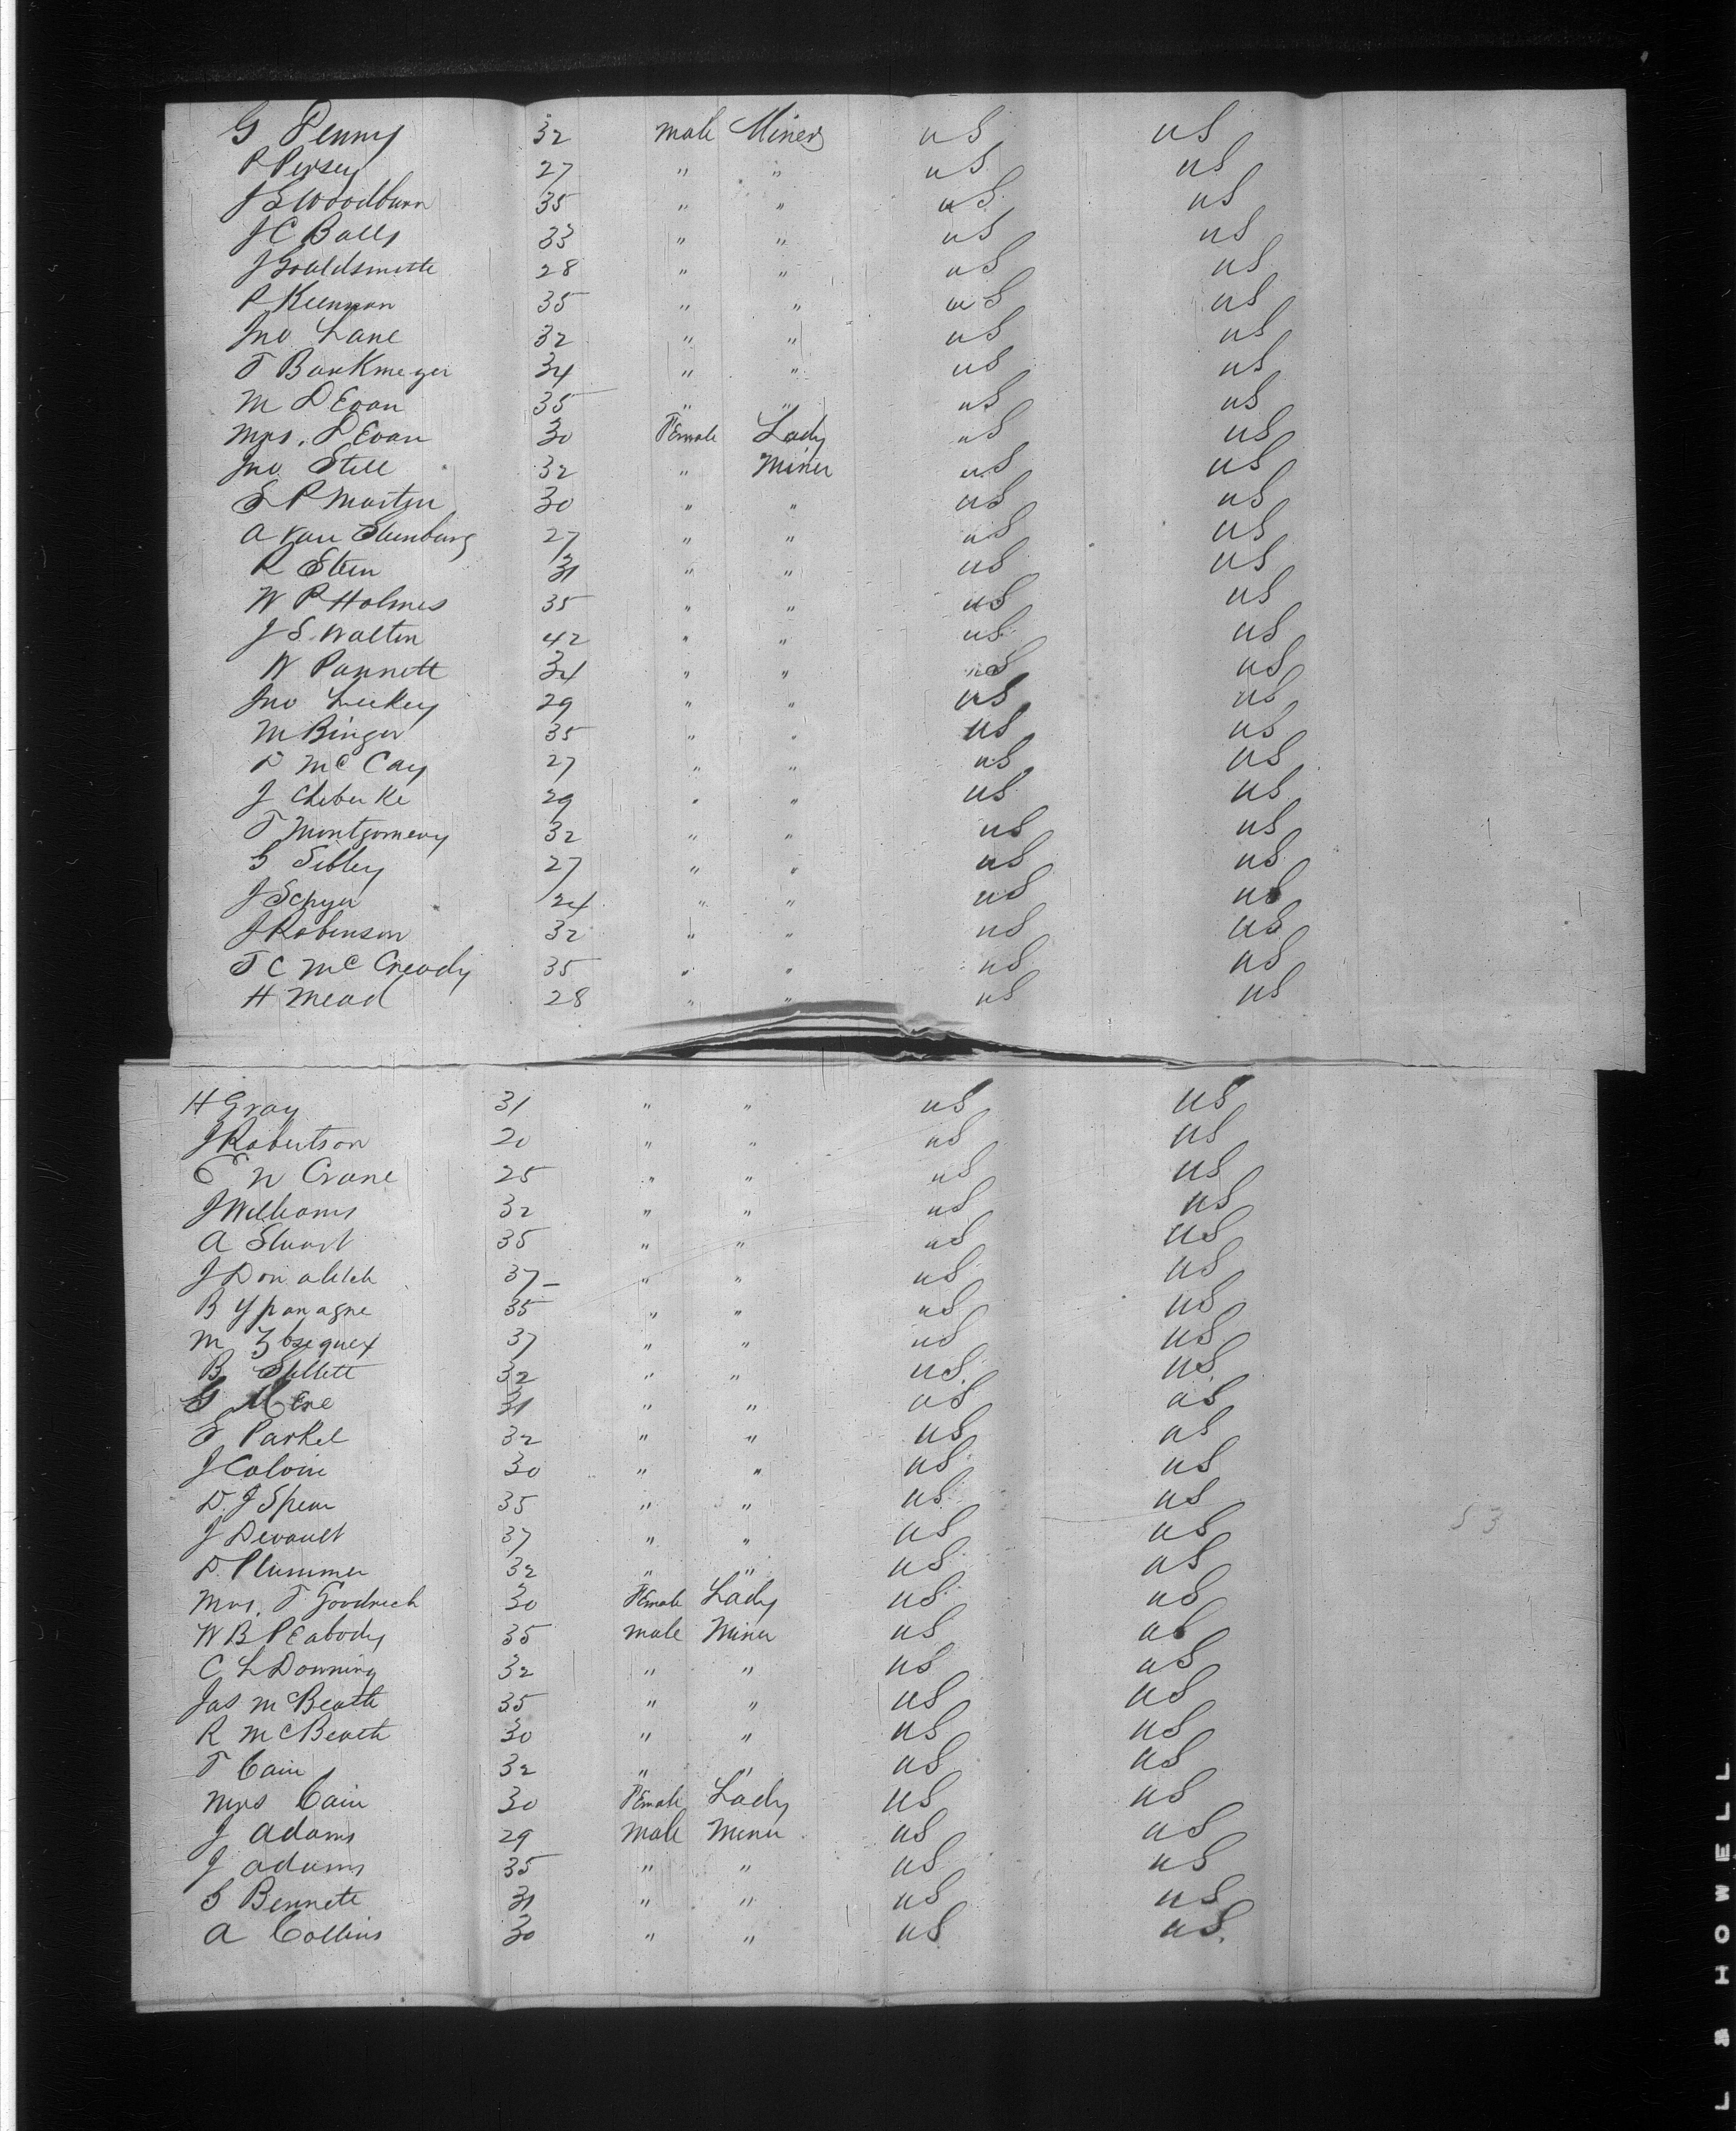 G Penny 32 male Miner US US
P Persey 27 " " US US
J S Woodburn 35 " " US US
J C Balls 33 " " US US
J Gouldsmith 28 " " US US
P Keennan 35 " " US US
Jno Lane 32 " " US US
T Bankmeyer 34 " " US US
M D Evan 35 " " US US
Mrs. D Evan 30 Female Lady US US
Jno Still 32 " Miner US US
S P Martin 30 " " US US
A Van Stenburg 27 " " US US
R Stein 31 " " US US
W P Holmes 35 " " US US
J S. Walten 42 " " US US
W Pannett 34 " " US US
Jno Luckey 29 " " US US
M Binger 35 " " US US
D McCay 27 " " US US
J 29 " " US US
T Montgomery 32 " " US US
G Sibley 27 " " US US
J 24 " " US US
J Robinson 32 " " US US
T C McCready 35 " " US US
H Mead 28 " " US US
H Gray 31 " " US US
J Robertson 20 " " US US
E N Crane 25 " " US US
J Williams 32 " " US US
A Stuart 35 " " US US
J 37 " " US US
B 35 " " US US
M 37 " " US US
B Stillett 32 " " US US
G 31 " " US US
S Parkel 32 " " US US
J Calvin 30 " " US US
D. J Spear 35 " " US US
53
J Devault 37 " " US US
D. Plummer 32 " " US US
Mrs. T Goodrich 30 Female Lady US US
W B PEabody 35 male Miner US US
C L Downing 32 " " US US
Jas McBeath 35 " " US US
R McBeath 30 " " US US
T Cain 32 " " US US
Mrs Cain 30 Female Lady US US
J Adams 29 Male Miner US US
J Adams 35 " " US US
S Bennett 31 " " US US
A Collins 30 " " US US
L & HOWELL